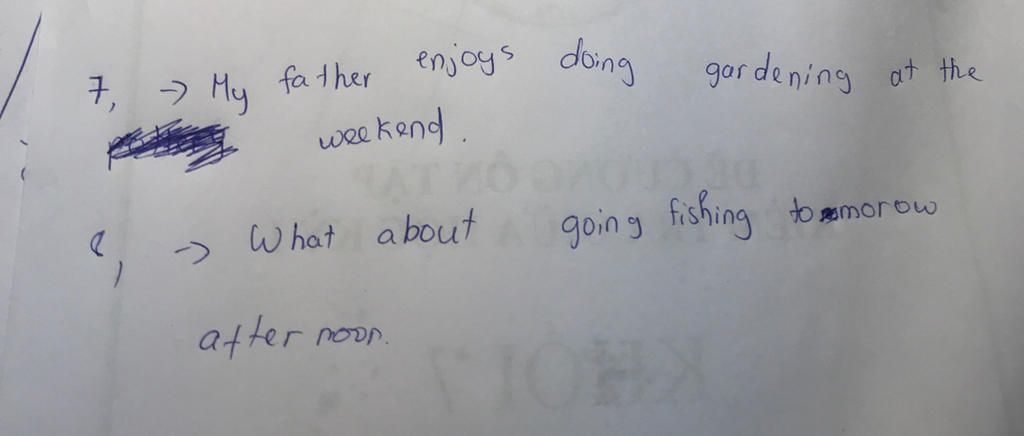 7, → My father enjoys doing gardening at the
weekend.
8, → What about going fishing tomorow
afternoon.